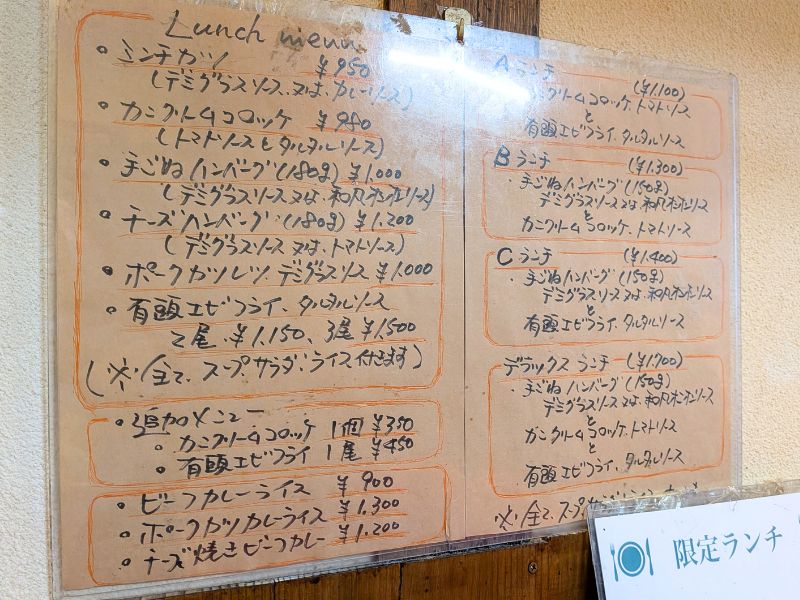 Lunch menu
• ミンチカツ ¥950
(デミグラスソース 又は、カレーソース)
• カニクリームコロッケ ¥980
(トマトソースとタルタルソース)
• 手ごねハンバーグ(180g) ¥1.000
(デミグラスソース 又は、和風オニオンソース)
• チーズハンバーグ(180g) ¥1.200
(デミグラスソース 又は、トマトソース)
• ポークカツレツ デミグラスソース ¥1.000
• 有頭エビフライ、タルタルソース
2尾、¥1.150、3尾 ¥1.500
(※全て、スープ、サラダ、ライス付きます)
• 追加メニュー
• カニクリームコロッケ 1個 ¥350
• 有頭エビフライ 1尾 ¥450
• ビーフカレーライス ¥900
• ポークカツカレーライス ¥1.300
• チーズ焼きビーフカレー ¥1.200
Aランチ (¥1.100)
カニクリームコロッケ、トマトソース
と
有頭エビフライ、タルタルソース
Bランチ (¥1.300)
・手ごねハンバーグ(150g)
デミグラスソース 又は、和風オニオンソース
と
カニクリームコロッケ、トマトソース
Cランチ (¥1.400)
・手ごねハンバーグ(150g)
デミグラスソース 又は、和風オニオンソース
と
有頭エビフライ、タルタルソース
デラックスランチ (¥1.700)
・手ごねハンバーグ(150g)
デミグラスソース 又は、和風オニオンソース
と
カニクリームコロッケ、トマトソース
と
有頭エビフライ、タルタルソース
※全て、スープ、
限定ランチ